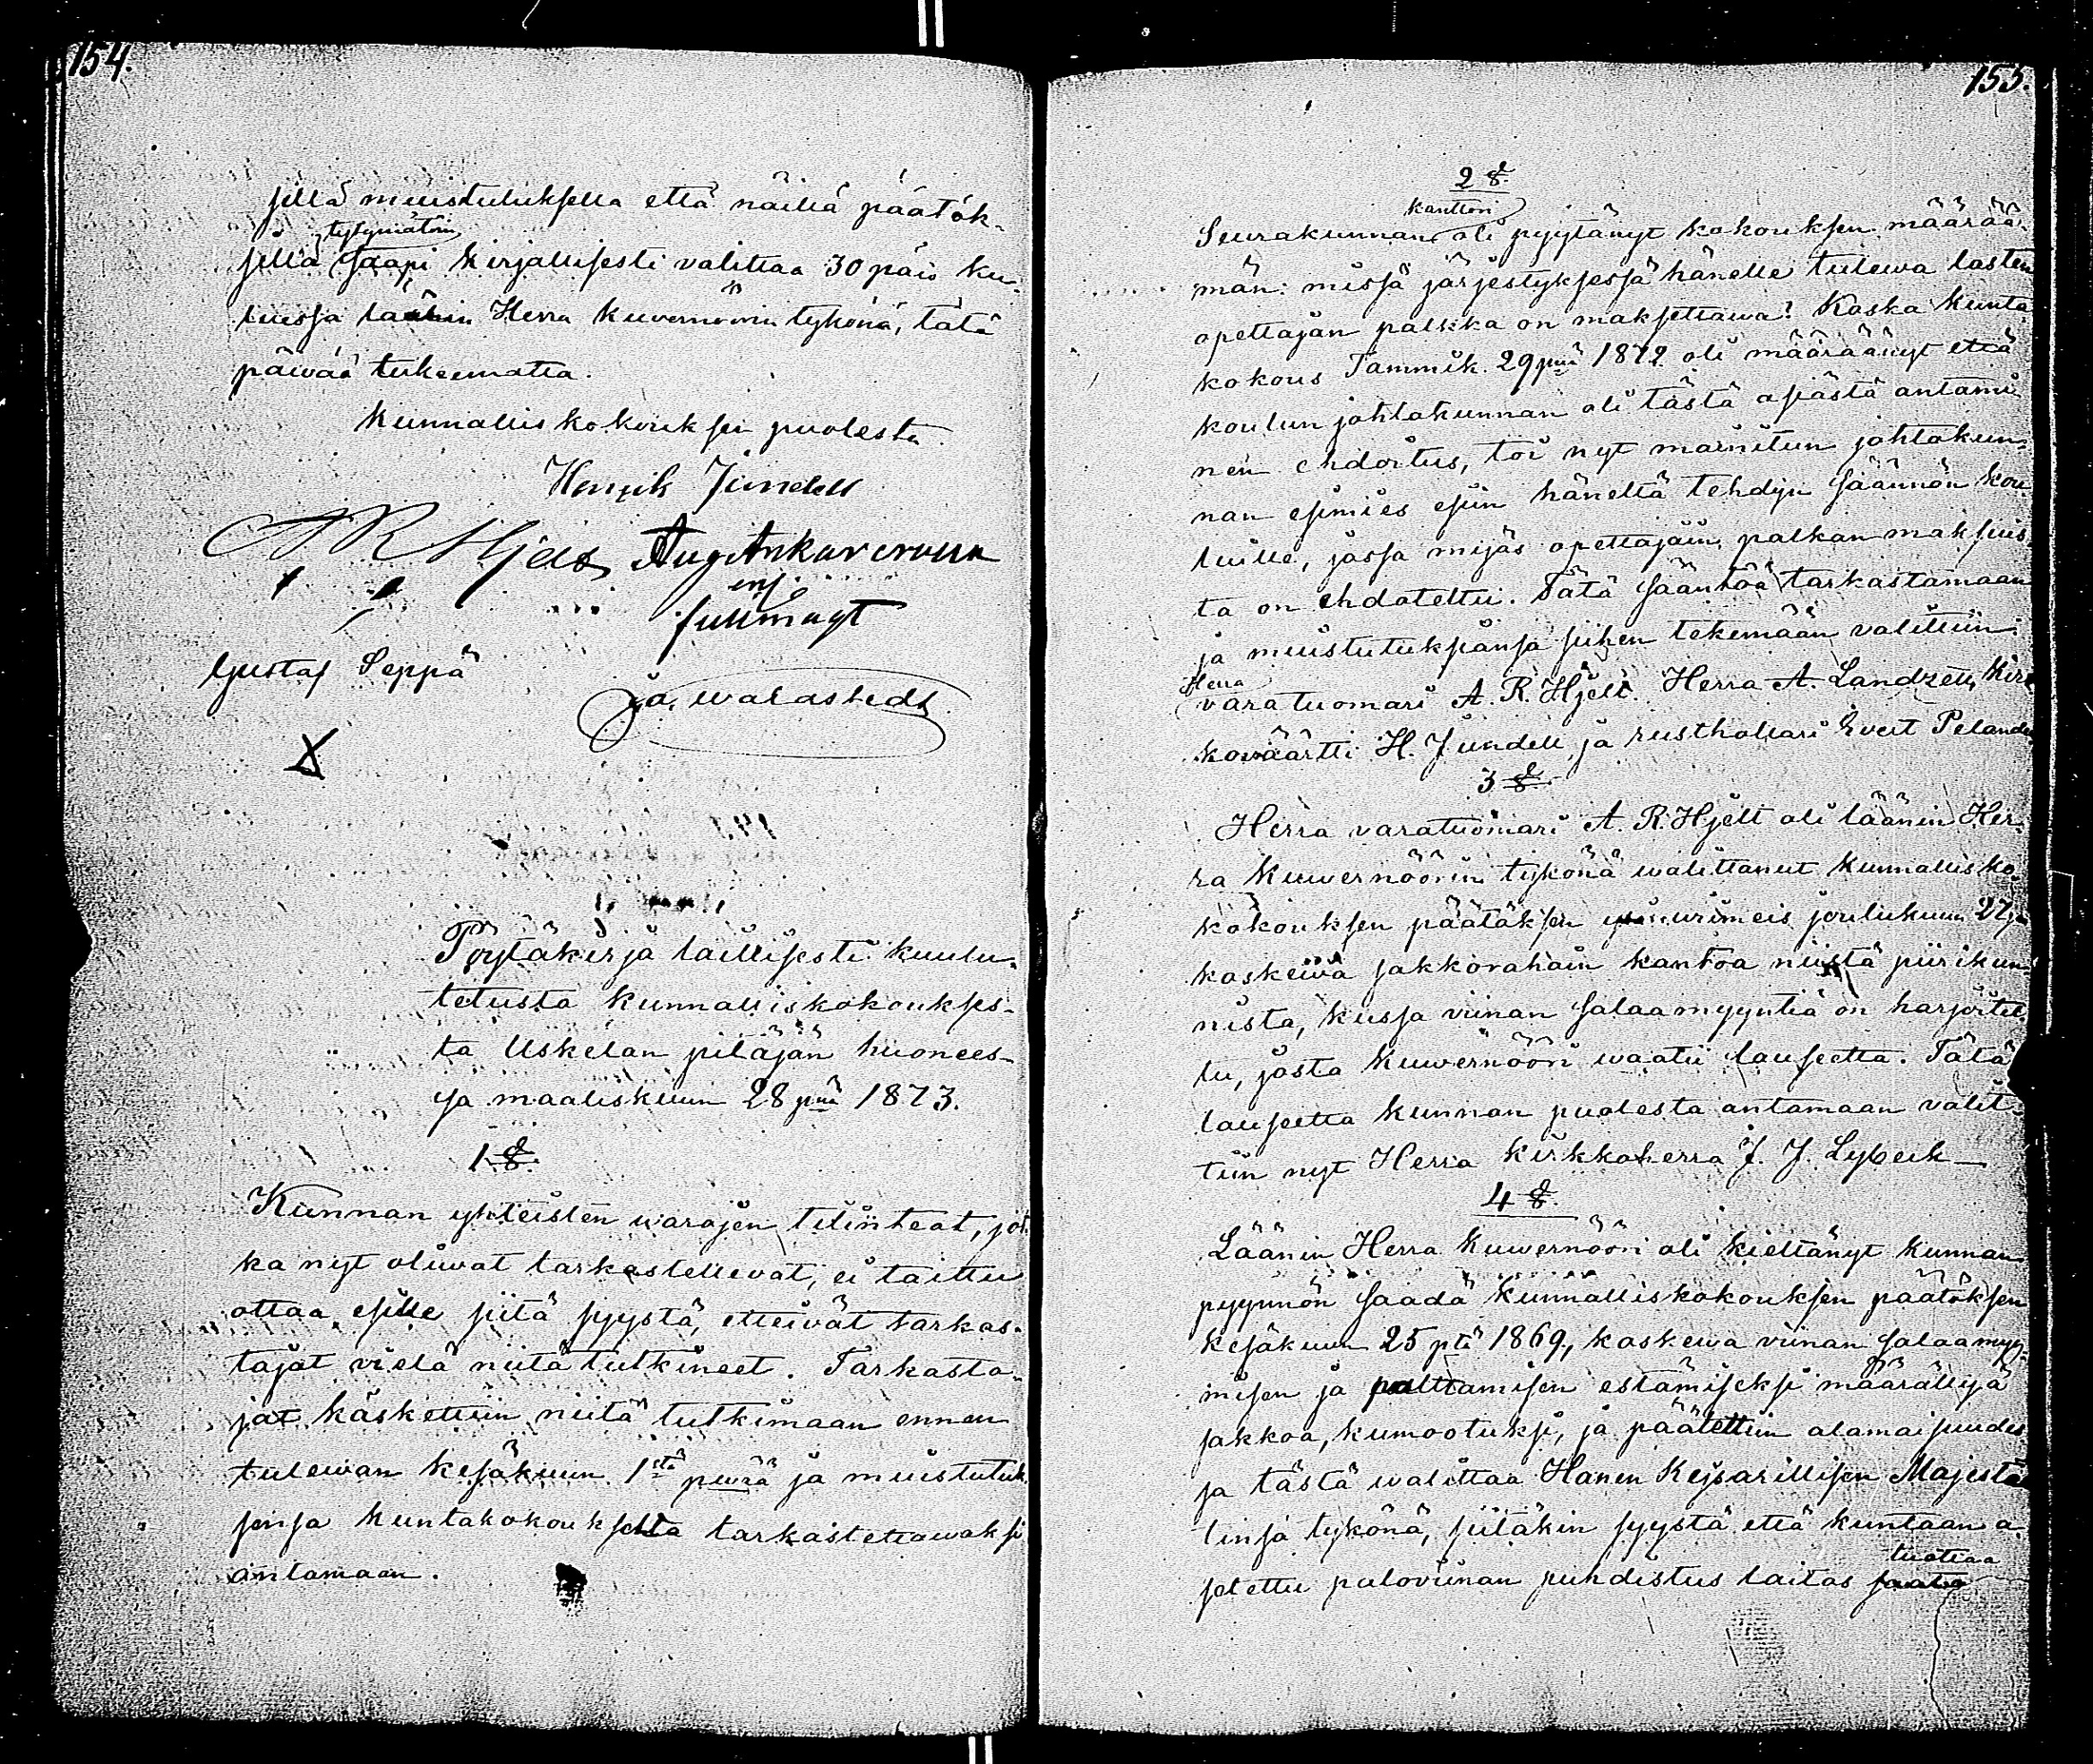 154.
sillä muistutuksella että näillä päätök-
tytymätöin
sillä saapi kirjallisesti valittaa 30 päiv ku-
luissa läänin Herra Kuvernörin tykönä, tätä
päivää lukematta.
Kunnalliskokouksen puolesta
Henrik Jündell
A R Hjelt Aug Ankarcrona
enl
fullmagt
Gustaf Seppä
J. a. walastedt
Pöytäkirja laillisesti kuulu-
tetusta kunnalliskokoukses-
ta Uskelan pitäjän huonees-
sa maaliskuun 28 pnä 1873.
1 §.
Kunnan yhteisten warajen tilinteat, jot-
ka nyt oliwat tarkastellevat, ei taittu
ottaa esille siitä syystä, etteivät tarkas-
tajat vielä niitä tutkineet. Tarkasta-
jat käskettiin niitä tutkimaan ennen
tulewan kesäkuun 1stä pwää ja muistutuk-
sensa kuntakokoukselta tarkastettawaksi
antamaan.
155.
2 §.
kanttori
Seurakunnan oli pyytänyt kokouksen määrää-
män: missä järjestyksessä hänelle tulewa lasten
opettajan palkka on maksettawa? Koska kunta
kokous Tammik. 29 pnä 1872 oli määräänyt että
koulun johtokunnan oli tästä asiasta antami-
nen ehdoitus, toi nyt mainitun johtokun-
nan esimies esiin häneltä tehdyn säännön kou-
luille, jossa myös opettajain palkan maksuis-
ta on ehdoteltu. Tätä sääntöä tarkastamaan
ja muistutuksiansa siihen tekemään valittiin
Herra
varatuomari A. R. Hjelt. Herra A. Landzett, Kir-
kowäärtti H. Jündell, ja rusthollari Evert Pelander
3 §.
Herra varatuomari A. R. Hjelt oli läänin Her-
ra Kuwernöörin tykönä walittanut kunnallisko-
kokouksen päätöksen wiimeis joulukuun 27 p
koskewa sakkorahain kantoa niistä piirikun-
nista, kussa viinan salaamyyntiä on harjoitel-
tu, josta Kuwernööri waatii lausetta. Tätä
lausetta kunnan puolesta antamaan valit-
tiin nyt Herra Kirkkoherra J. J. Lybeck —
4 §.
Läänin Herra Kuwernööri oli kieltänyt kunnan
pyynnön saada kunnalliskokouksen päätöksen
kesäkuun 25 ptä 1869, koskewa viinan salaamyy-
misen ja polttamisen estämiseksi määrättyä
sakkoa, kumootuksi, ja päätettiin alamaisuudes-
sa tästä walittaa Hänen Keisarillisen Majestä-
tinsa tykönä, siitäkin syystä että kuntaan a-
tuottaa
setettu paloviinan puhdistus laitos saatta